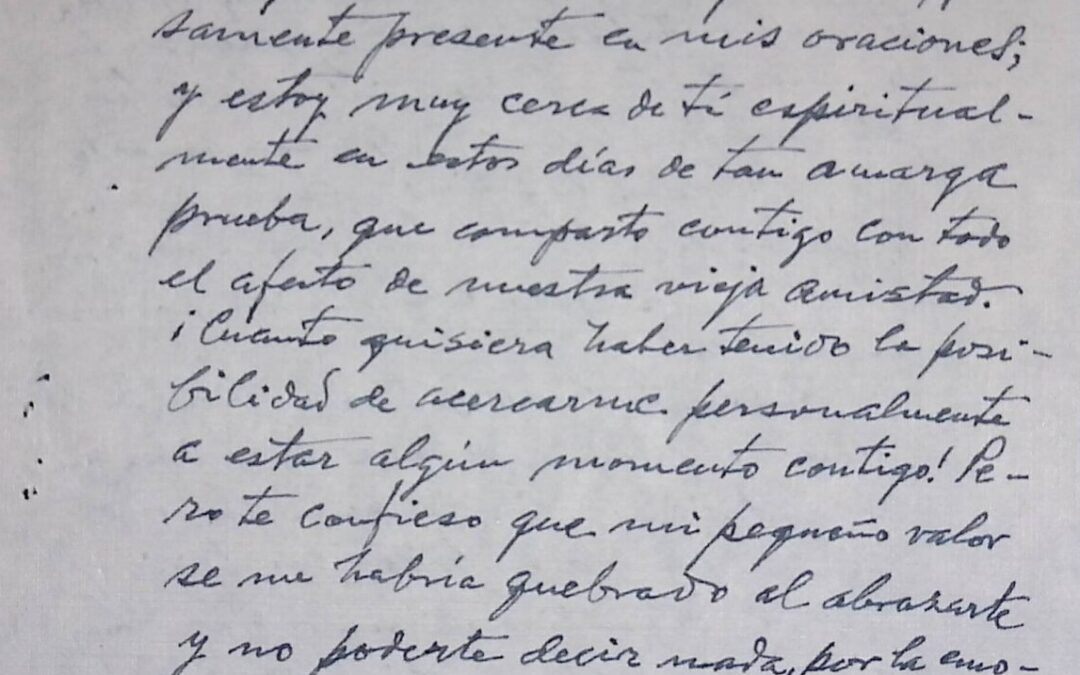 samente presente en mis oraciones;
y estoy muy cerca de tí espiritual-
mente en estos días de tan amarga
prueba, que comparto contigo con todo
el afecto de nuestra vieja amistad.
¡Cuanto quisiera haber tenido la posi-
bilidad de acercarme personalmente
a estar algún momento contigo! Pe-
ro te confieso que mi pequeño valor
se me habría quebrado al abrazarte
y no poderte decir nada, por la emo-